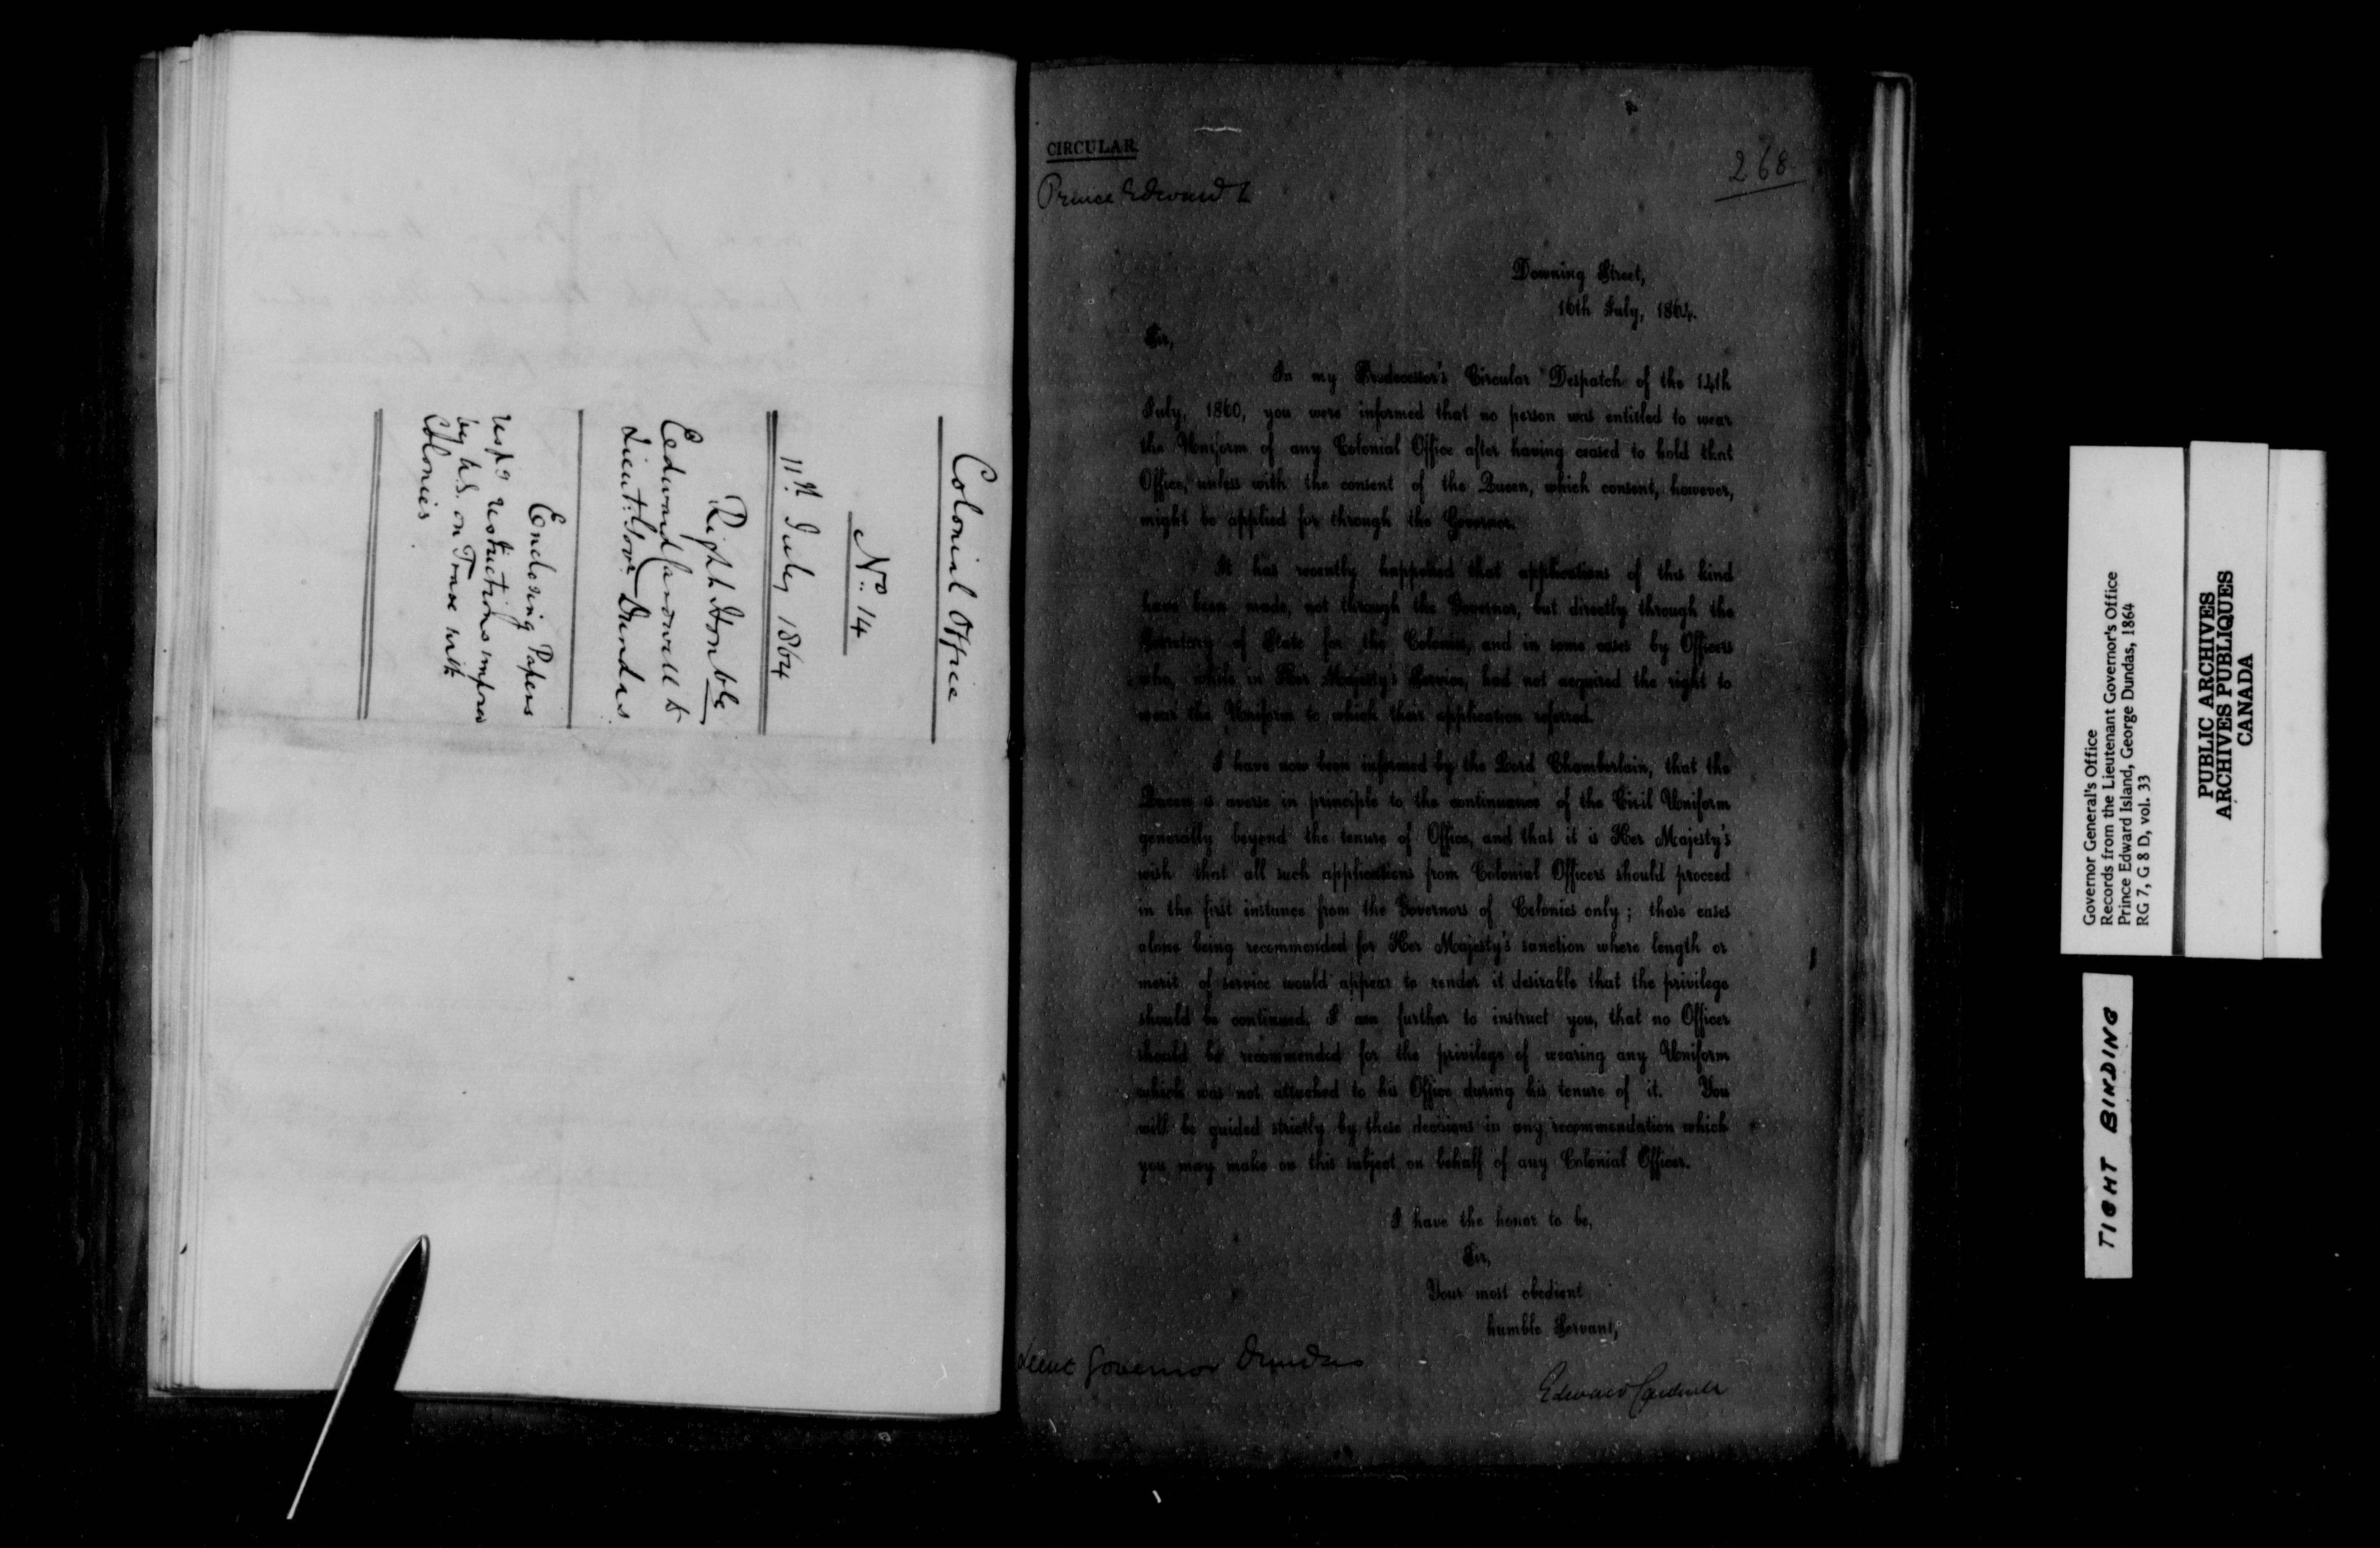 Colonial Office
No. 14
11th July 1864
Right Honble
Edward Cardwell to
Lieut. Govr Dundas
Enclosing Papers
respg restrictions imposed
by U.S. on Trade with
Colonies.
CIRCULAR.
Prince Edward I.
268.
Downing Street,
16th July, 1864.
Sir,
In my Predecessor's Circular Despatch of the 14th
July, 1860, you were informed that no person was entitled to wear
the Uniform of any Colonial Office after having ceased to hold that
Office, unless with the consent of the Queen, which consent, however,
might be applied for through the Governor.
It has recently happened that applications of this kind
have been made, not through the Governor, but directly through the
Secretary of State for the Colonies, and in some cases by Officers
who, while in Her Majesty's Service, had not acquired the right to
wear the Uniform to which their application referred.
I have now been informed by the Lord Chamberlain, that the
Queen is averse in principle to the continuance of the Civil Uniform
generally beyond the tenure of Office, and that it is Her Majesty's
wish that all such applications from Colonial Officers should proceed
in the first instance from the Governors of Colonies only; those cases
alone being recommended for Her Majesty's sanction where length or
merit of service would appear to render it desirable that the privilege
should be continued. I am further to instruct you, that no Officer
should be recommended for the privilege of wearing any Uniform
which was not attached to his Office during his tenure of it. You
will be guided strictly by these decisions in any recommendation which
you may make on this subject on behalf of any Colonial Officer.
I have the honor to be,
Sir,
Your most obedient
humble Servant,
Lieut Governor Dundas
Edward Cardwell
Governor General's Office
Records from the Lieutenant Governor's Office
Prince Edward Island, George Dundas, 1864
RG 7, G 8 D, vol. 33
PUBLIC ARCHIVES
ARCHIVES PUBLIQUES
CANADA
TIGHT BINDING